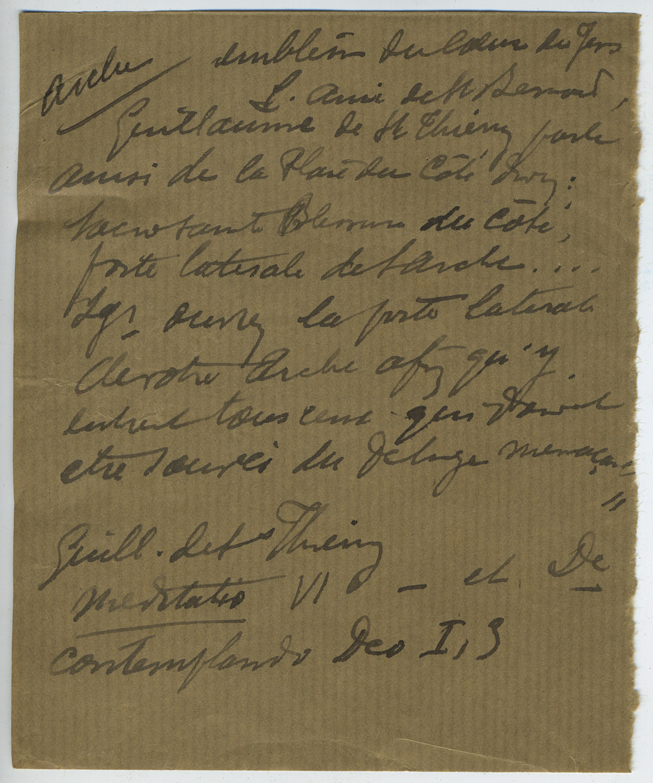 Arche emblème du Coeur de Jess
L'ami de St Bernard,
Guillaume de St Thierry parle
aussi de la Plaie du Côté :
sacro sainte du Côté,
porte laterale de l'arche....
Sgr ouvrez la porte laterale
de votre Arche afin qu'y
entrent tous ceux qui doivent
etre sauvés du Deluge menaçant
"
Guill. de St Thierry
Meditatio VI - et De
contemplando Deo I, 3